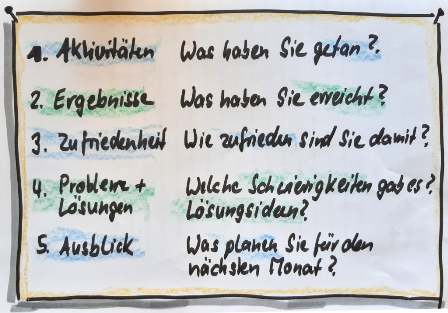 1. Aktivitäten Was haben Sie getan?
2. Ergebnisse Was haben Sie erreicht?
3. Zufriedenheit Wie zufrieden sind Sie damit?
4. Probleme + Welche Schwierigkeiten gab es?
Lösungen Lösungsideen?
5. Ausblick Was planen Sie für den
nächsten Monat?